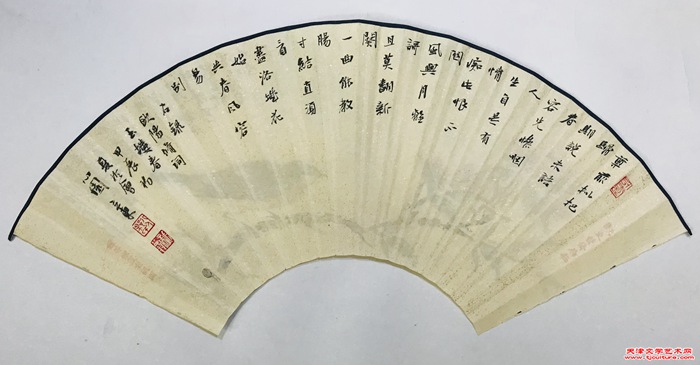 尊前擬把
歸
期說未語
春
容先慘咽
人
生自是有
情
痴此恨不
關
風與月離
歌
且莫翻新
闋
一曲能教
腸
寸結直須
看
盡洛城花
始
共春風容
易
別
右錄
歐陽
玉樓春
甲辰
夏
天津文学艺术网
www.tjculture.com